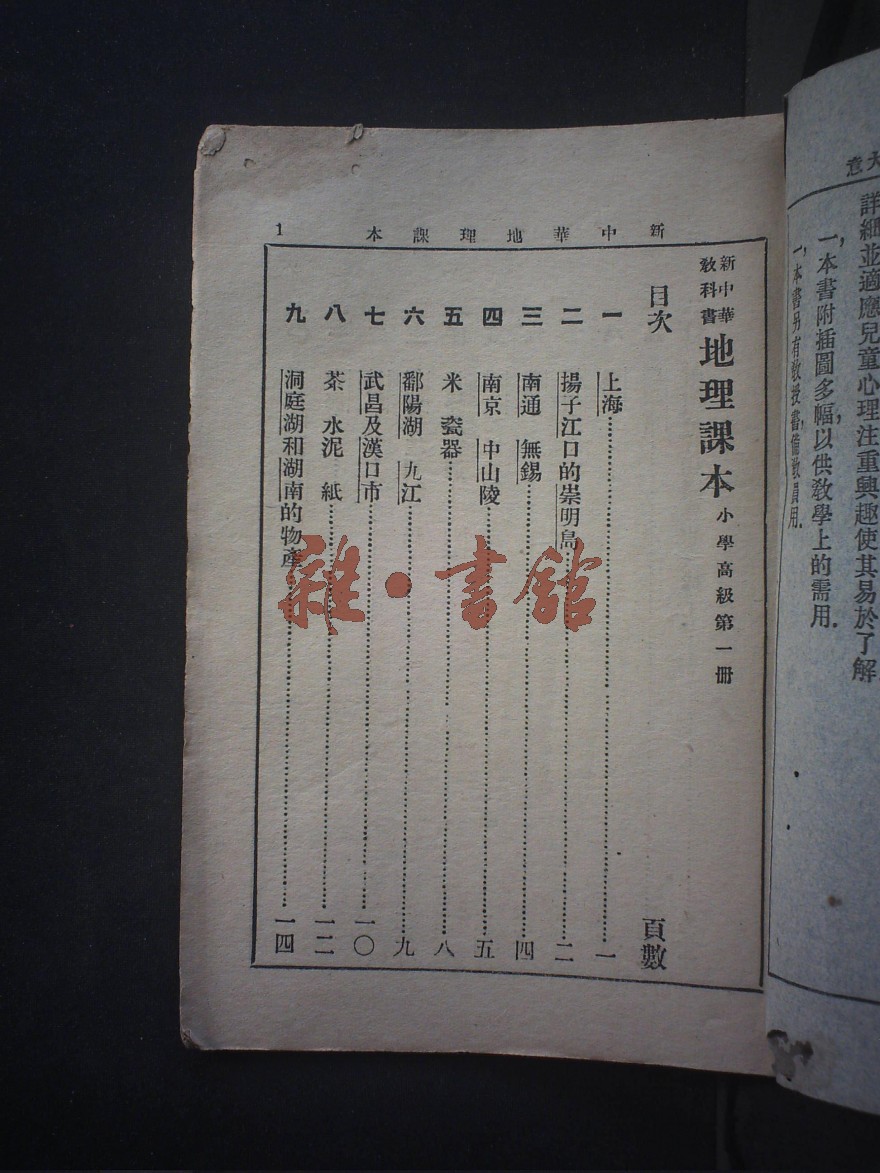 大意
詳細並適應兒童心理注重興趣使其易於了解
一，本書附插圖多幅，以供教學上的需用．
一，本書另有教授書，備教員用．
新中華地理課本
1
新中華教科書 地理課本 小學高級第一冊
目次 頁數
一 上海……一
二 揚子江口的崇明島……二
三 南通 無錫……四
四 南京 中山陵……五
五 米 瓷器……八
六 鄱陽湖 九江……九
七 武昌及漢口市……一〇
八 茶 水泥 紙……一二
九 洞庭湖和湖南的物產……一四
雜·書館